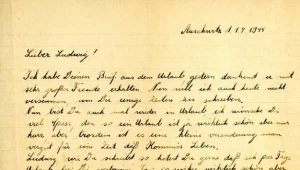 Auschwitz d. 1.9. 1944
Lieber Ludwig!
Ich habe Deinen Brief aus dem Urlaub gestern dankend u. mit
sehr großer Freude erhalten. Nun will ich auch heute nicht
versäumen um Dir einige Zeilen zu schreiben.
Nun bist Du auch mal wieder in Urlaub ich wünsche Dir
viel Spass, den so ein Urlaub ist ja wirklich schön aber nur
kurz aber trozdem ist es eine kleine
vergißt für eine Zeit daß Kommis Leben.
Ludwig wie Du schreibst so hattest Du ganze daß ich paar Tage
Urlaub